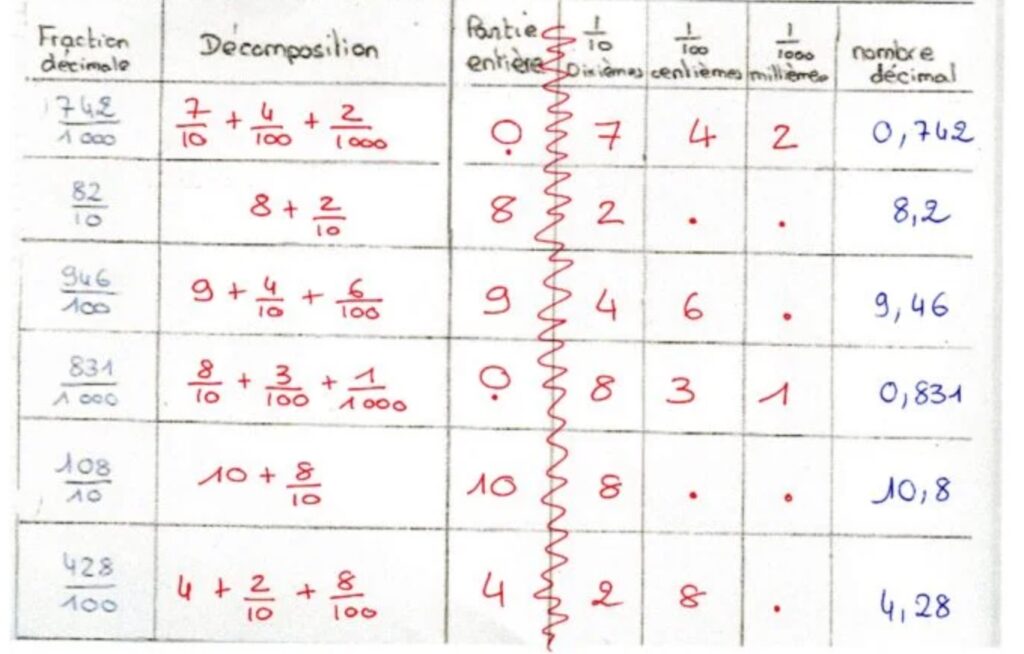 Fraction décimale | Décomposition | Partie entière | 1/10 Dixièmes | 1/100 centièmes | 1/1000 millièmes | nombre décimal
742/1000 | 7/10 + 4/100 + 2/1000 | 0 | 7 | 4 | 2 | 0,742
82/10 | 8 + 2/10 | 8 | 2 | . | . | 8,2
946/100 | 9 + 4/10 + 6/100 | 9 | 4 | 6 | . | 9,46
831/1000 | 8/10 + 3/100 + 1/1000 | 0 | 8 | 3 | 1 | 0,831
108/10 | 10 + 8/10 | 10 | 8 | . | . | 10,8
428/100 | 4 + 2/10 + 8/100 | 4 | 2 | 8 | . | 4,28